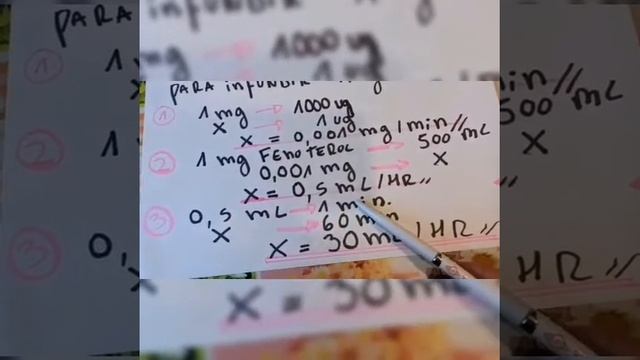 PARA INFUNDIR
① 1 mg → 1000 ug
X → 1 ug
X = 0,001 mg/min//
② 1 mg FENOTEROL → 500 mL
0,001 mg → X
X = 0,5 mL/HR//
③ 0,5 mL → 1 min.
X → 60 min
X = 30 mL/HR//